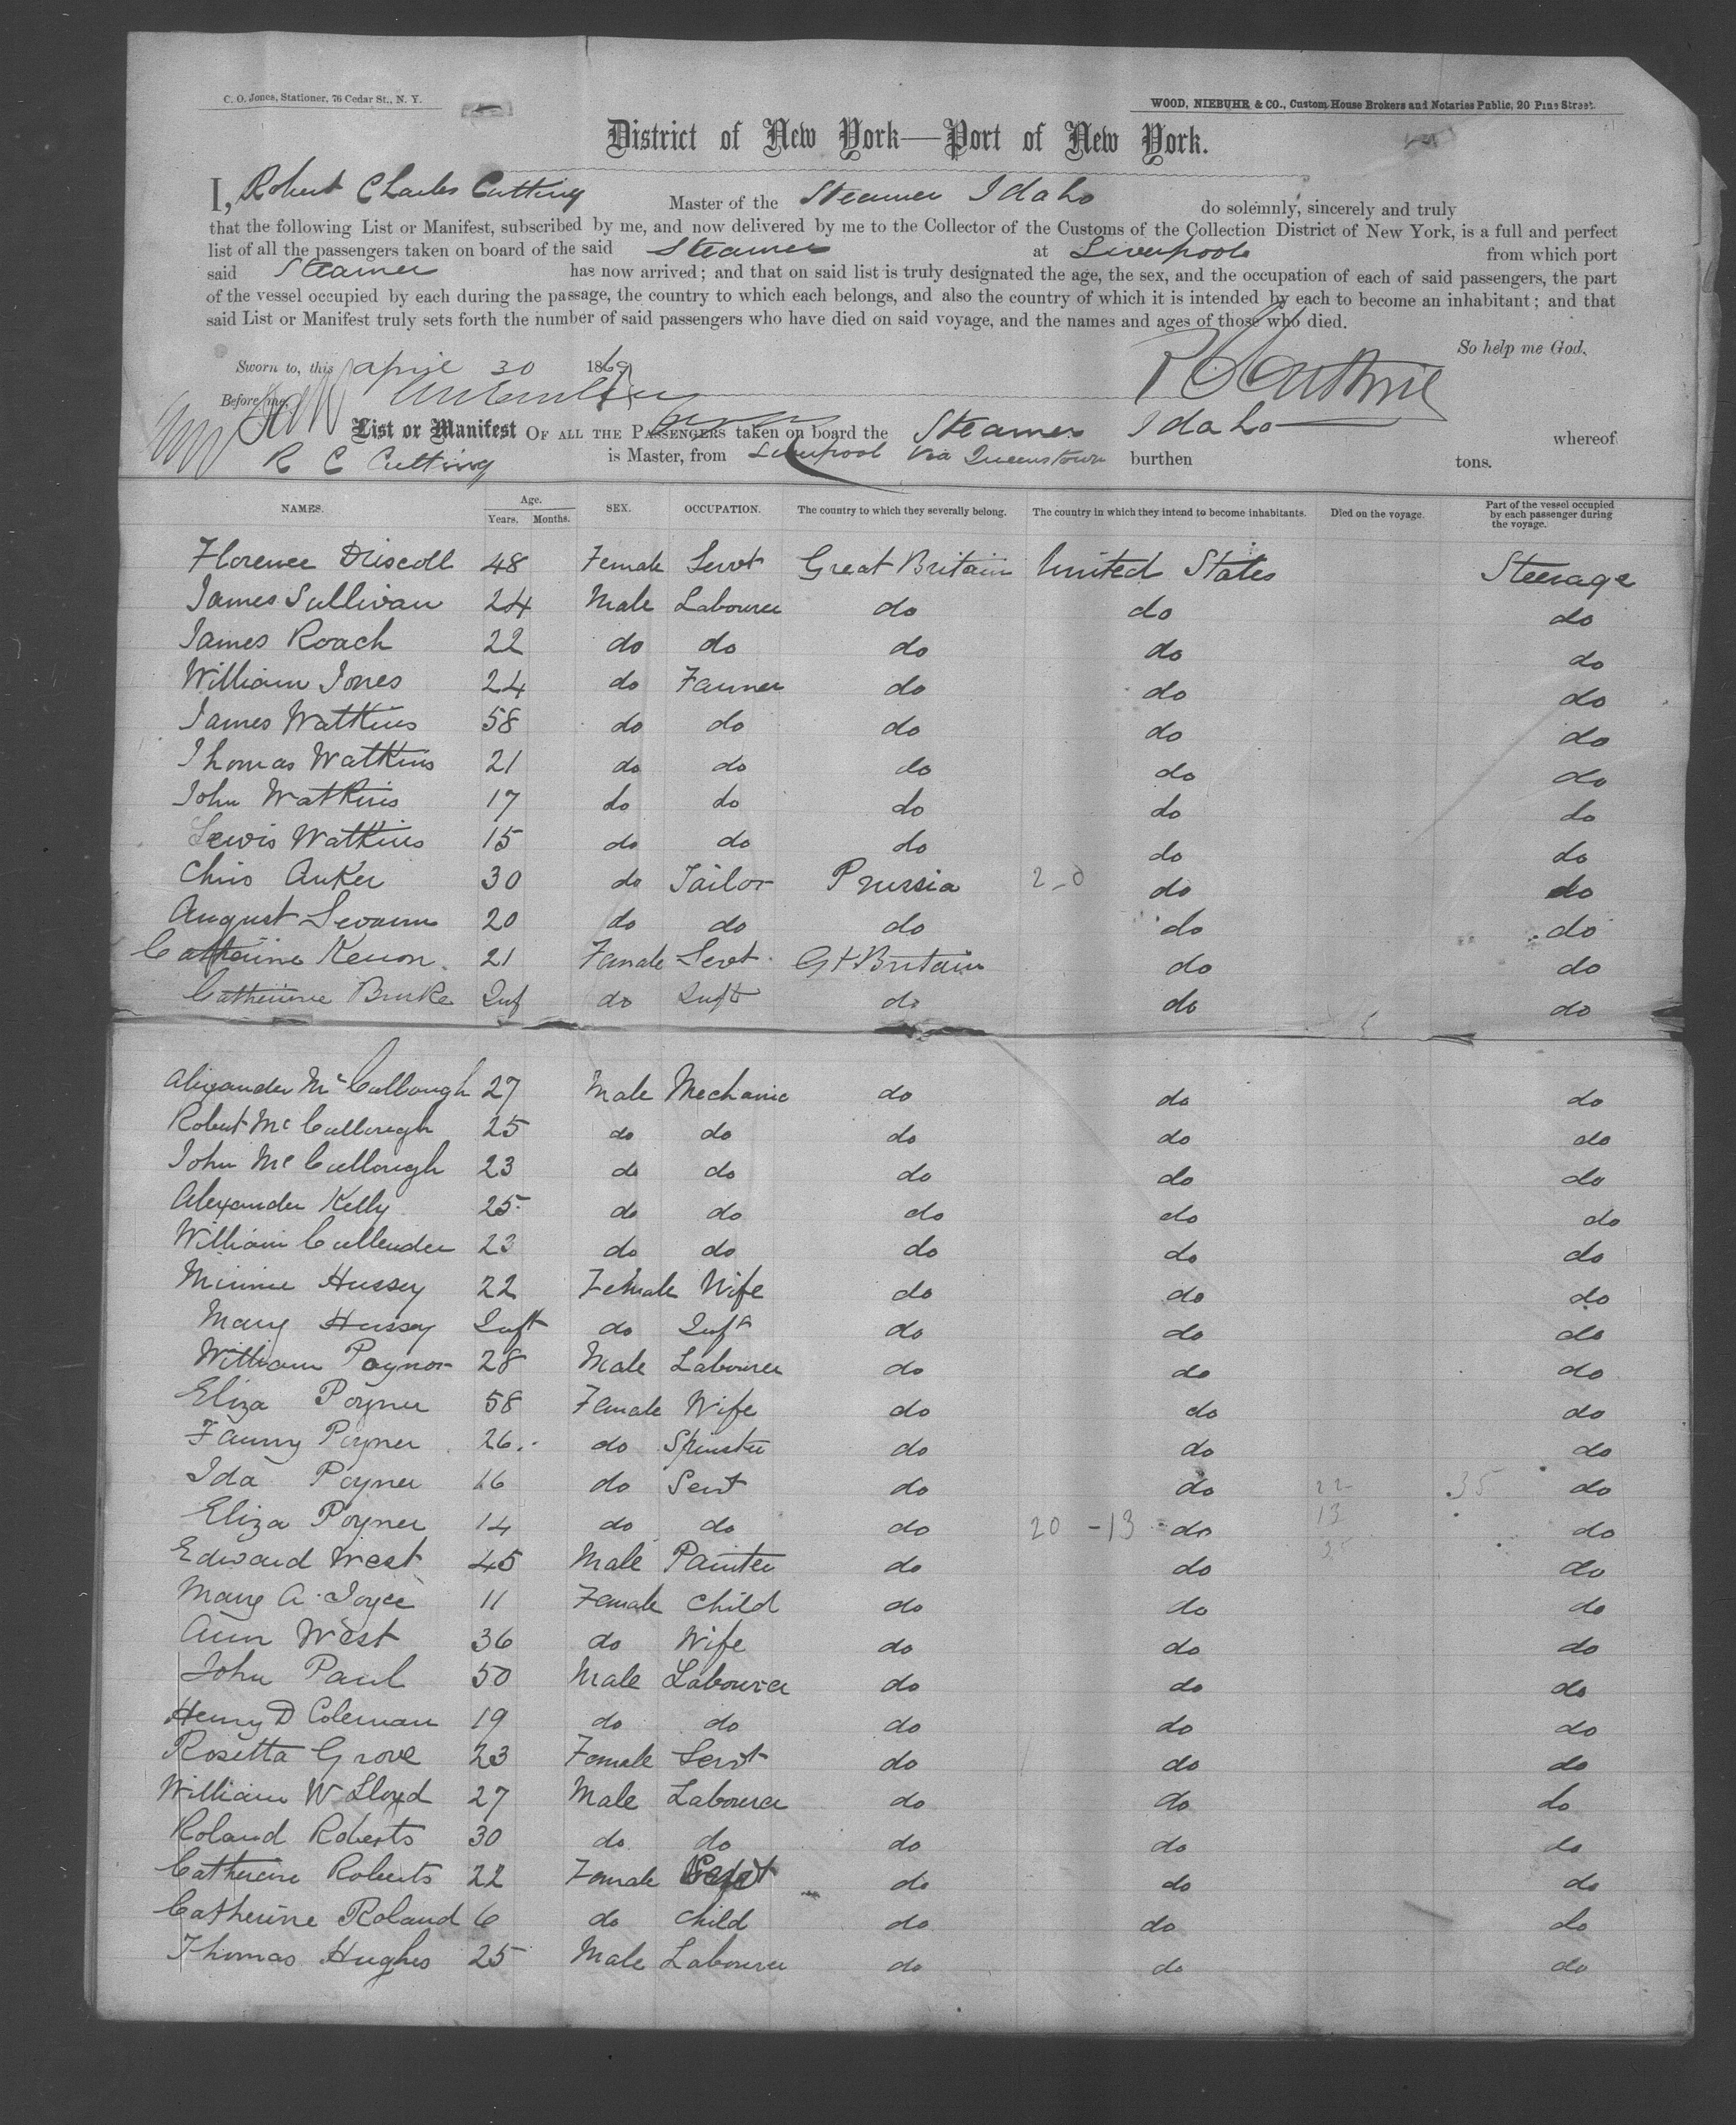 C. O. Jones, Stationer, 76 Cedar St., N. Y.
WOOD, NIEBUHR & CO., Custom House Brokers and Notaries Public, 20 Pine Street.
District of New York—Port of New York.
I, Robert Charles Cutting Master of the Steamer Idaho do solemnly, sincerely and truly
that the following List or Manifest, subscribed by me, and now delivered by me to the Collector of the Customs of the Collection District of New York, is a full and perfect
list of all the passengers taken on board of the said Steamer at Liverpool from which port
said Steamer has now arrived; and that on said list is truly designated the age, the sex, and the occupation of each of said passengers, the part
of the vessel occupied by each during the passage, the country to which each belongs, and also the country of which it is intended by each to become an inhabitant; and that
said List or Manifest truly sets forth the number of said passengers who have died on said voyage, and the names and ages of those who died.
So help me God.
Sworn to, this april 30 1869
Before me,
List or Manifest OF ALL THE PASSENGERS taken on board the Steamer Idaho whereof
R C Cutting is Master, from Liverpool Via Queenstown burthen tons.
NAMES. Age. Years. Months. SEX. OCCUPATION. The country to which they severally belong. The country in which they intend to become inhabitants. Died on the voyage. Part of the vessel occupied by each passenger during the voyage.
Florence Driscoll 48 Female Servt Great Britain United States Steerage
James Sullivan 24 Male Labourer do do do
James Roach 22 do do do do do
William Jones 24 do Farmer do do do
James Watkins 58 do do do do do
Thomas Watkins 21 do do do do do
John Watkins 17 do do do do do
Lewis Watkins 15 do do do do do
Chris Anker 30 do Tailor Prussia do do
August 20 do do do do do
Catherine Kenon 21 Female Servt Gt Britain do do
Catherine Burke Inf do Inft do do do
Alexander McCullough 27 Male Mechanic do do do
Robert McCullough 25 do do do do do
John McCullough 23 do do do do do
Alexander Kelly 25 do do do do do
William Cullender 23 do do do do do
Minnie Hussey 22 Female Wife do do do
Mary Hussey Inft do Inft do do do
William Poynor 28 Male Labourer do do do
Eliza Poyner 58 Female Wife do do do
Fanny Poyner 26 do Spinster do do do
Ida Poyner 16 do Servt do do 22 35 do
Eliza Poyner 14 do do do 20 -13 do 13 do
Edward West 45 Male Painter do do 35 do
Mary A. Joyce 11 Female Child do do do
Ann West 36 do Wife do do do
John Paul 50 Male Labourer do do do
Henry D Coleman 19 do do do do do
Rosetta Grove 23 Female Servt do do do
William W Lloyd 27 Male Labourer do do do
Roland Roberts 30 do do do do do
Catherine Roberts 22 Female do do do
Catherine Roland 6 do Child do do do
Thomas Hughes 25 Male Labourer do do do